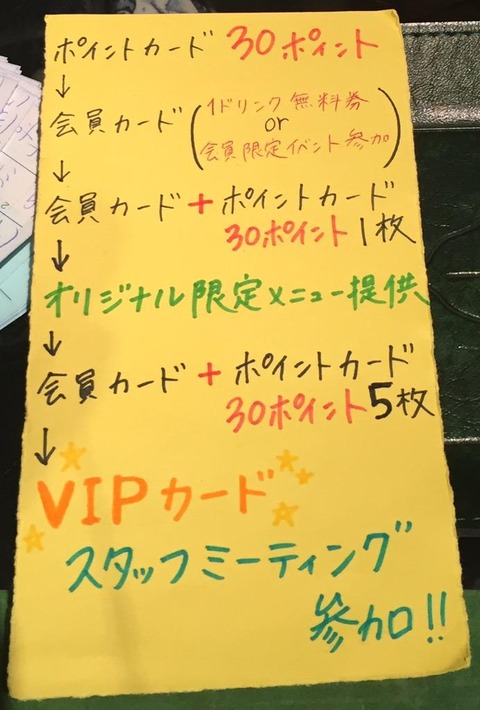 ポイントカード 30ポイント
↓
会員カード(1ドリンク無料券
or
会員限定イベント参加)
↓
会員カード+ポイントカード
30ポイント1枚
↓
オリジナル限定メニュー提供
↓
会員カード+ポイントカード
30ポイント5枚
↓
VIPカード
スタッフミーティング
参加!!